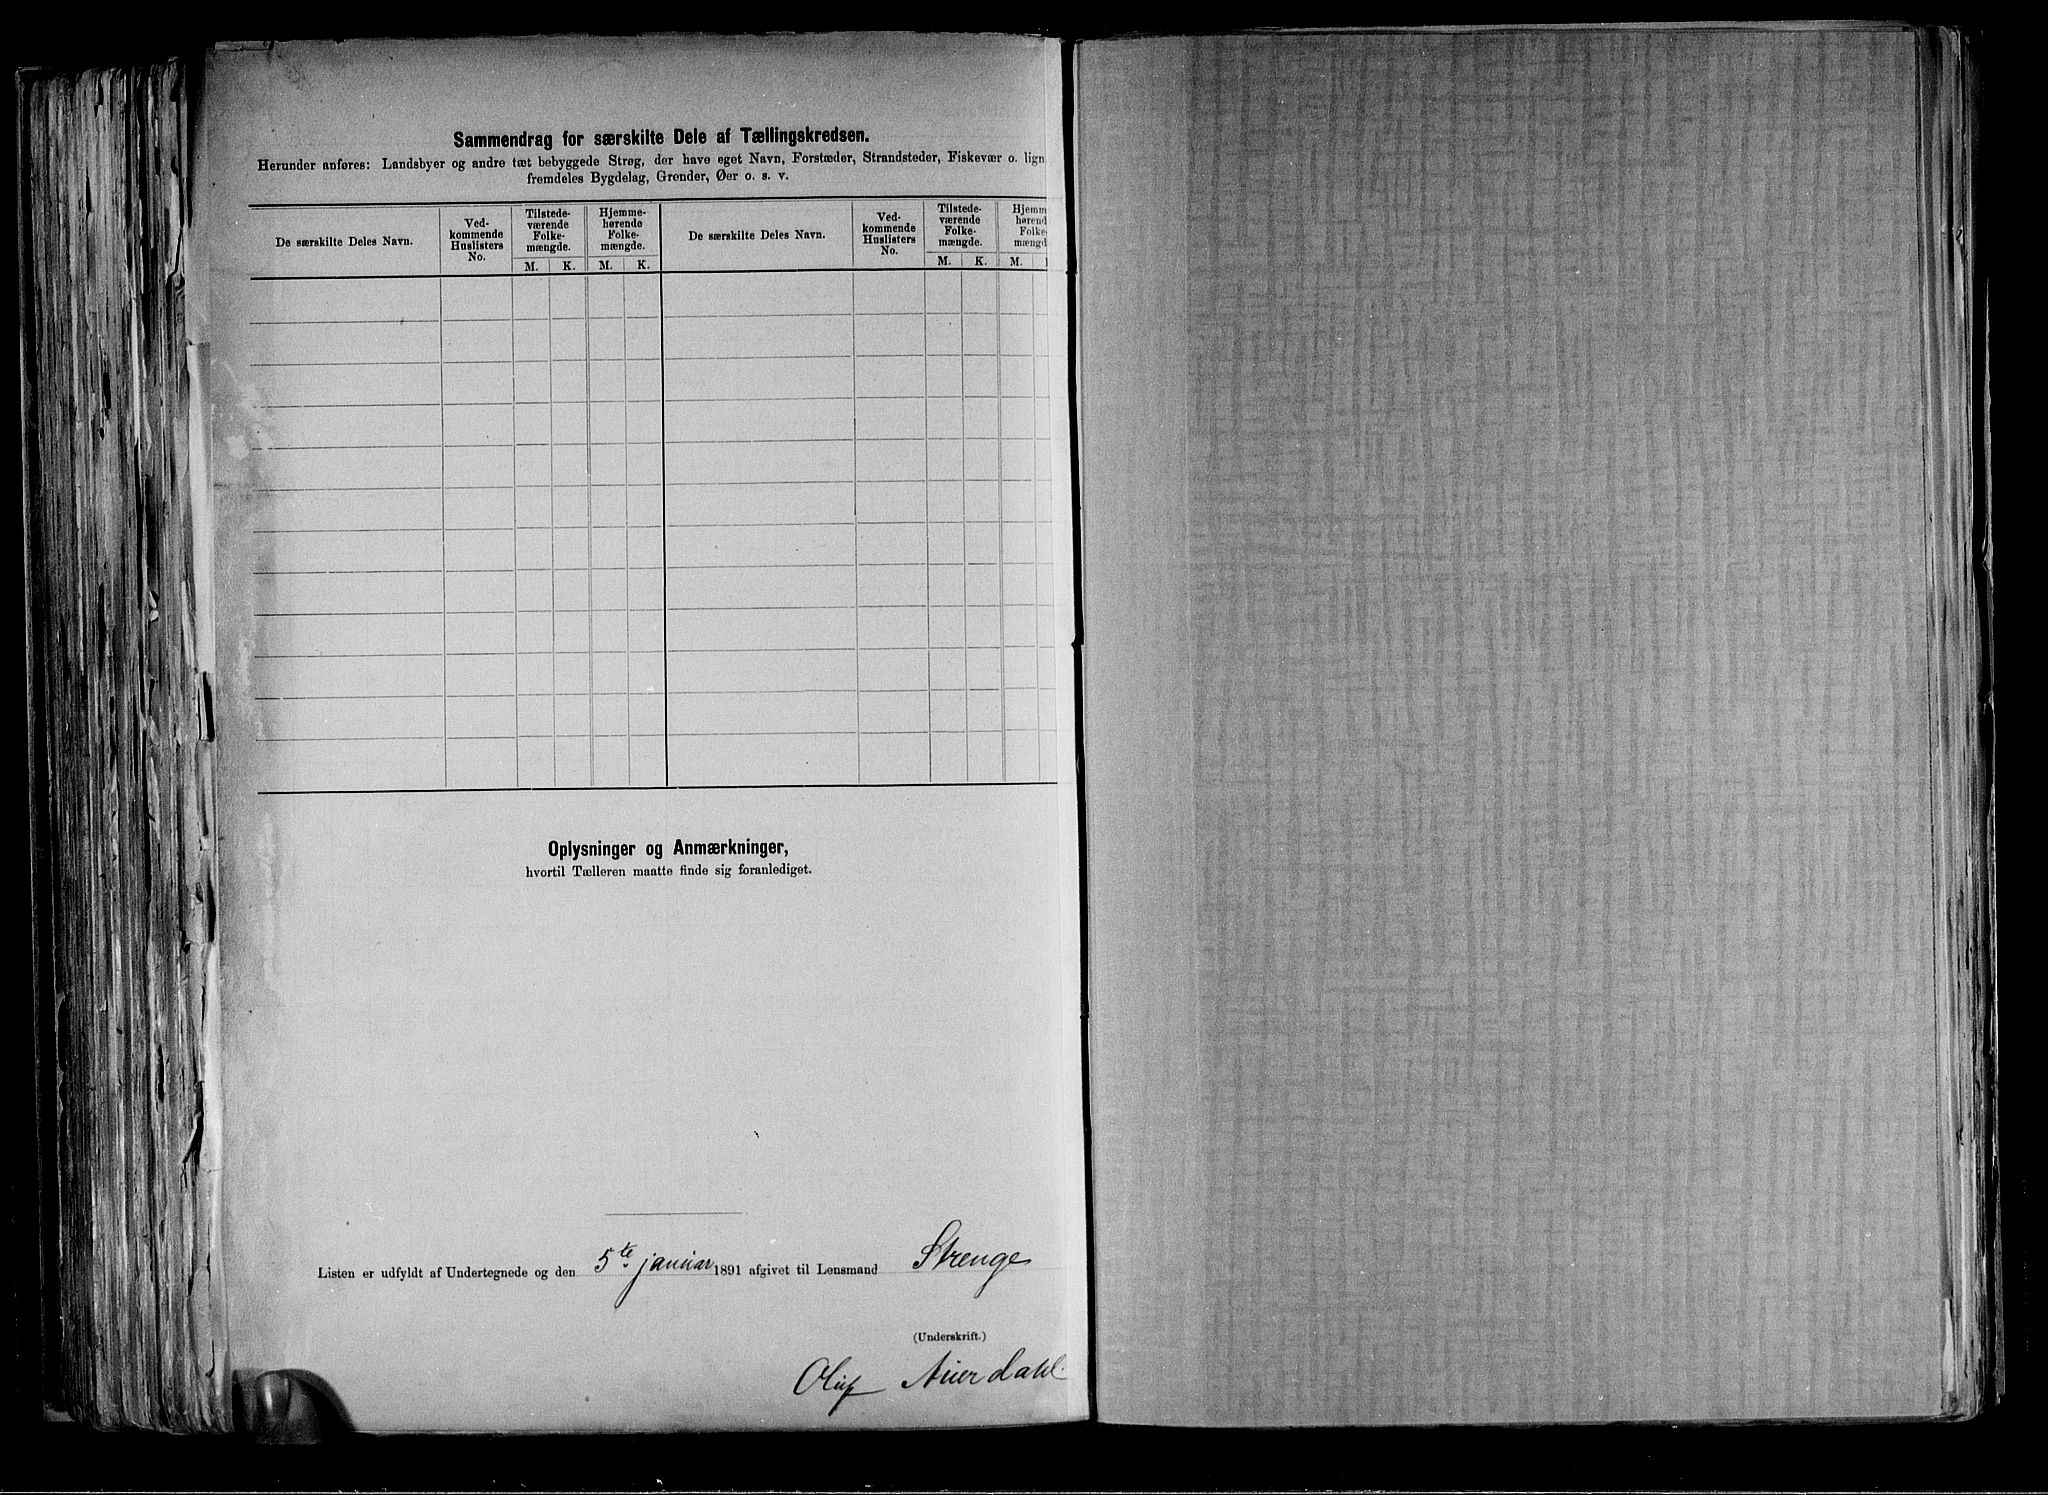 Sammendrag for særskilte Dele af Tællingskredsen.
Herunder anføres: Landsbyer og andre tæt bebyggede Strøg, der have eget Navn, Forstæder, Strandsteder, Fiskevær o. lign.
fremdeles Bygdelag, Grender, Øer o. s. v.
De særskilte Deles Navn. Ved-kommende Huslisters No. Tilstede-værende Folke-mængde. Hjemme-hørende Folke-mængde. De særskilte Deles Navn. Ved-kommende Huslisters No. Tilstede-værende Folke-mængde. Hjemm hørend Folke mængd
M. K. M. K. M. K. M.
Oplysninger og Anmærkninger,
hvortil Tælleren maatte finde sig foranlediget.
Listen er udfyldt af Undertegnede og den 5te januar 1891 afgivet til Lensmand Strenge
(Underskrift.)
Oluf Auerdahl.